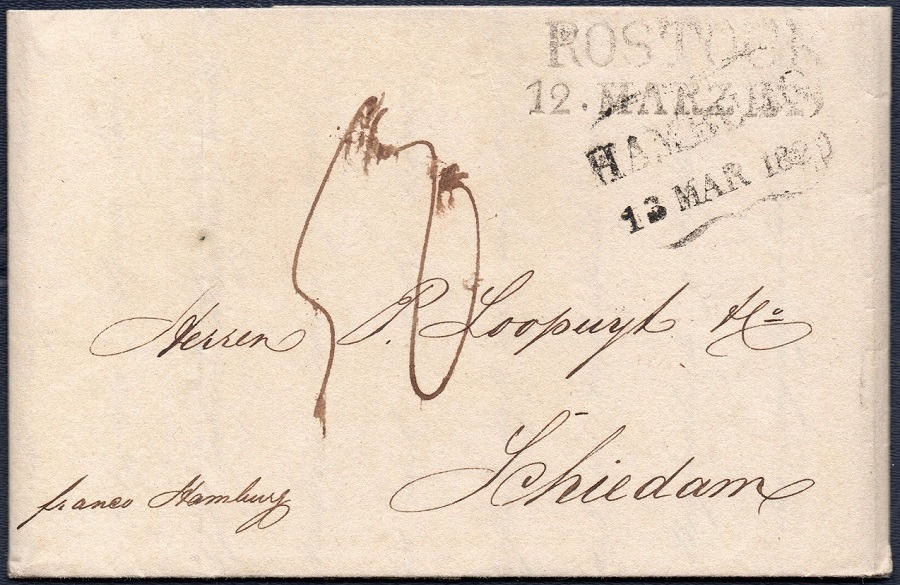 ROSTOCK
12. MARZ
HAMBURG
13 MAR
50
Herren P. Loopuyt & Co
Schiedam
franco Hamburg